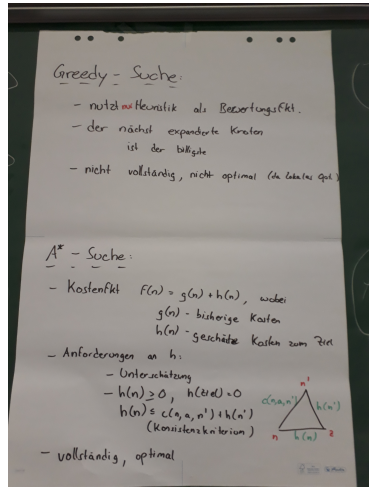 Greedy - Suche:
- nutzt nur Heuristik als Bewertungsfkt.
- der nächst expandierte Knoten
ist der billigste
- nicht vollständig, nicht optimal (da lokales Opt.)
A* - Suche:
- Kostenfkt f(n) = g(n) + h(n), wobei
g(n) - bisherige Kosten
h(n) - geschätzte Kosten zum Ziel
- Anforderungen an h:
- Unterschätzung
- h(n) ≥ 0, h(Ziel) = 0
h(n) ≤ c(n, a, n') + h(n')
(Konsistenzkriterium)
n'
c(n,a,n')
h(n')
n
h(n)
z
- vollständig, optimal